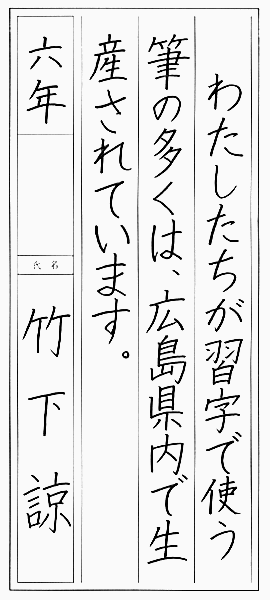 わたしたちが習字で使う
筆の多くは、広島県内で生
産されています。
六年
氏名
竹下諒